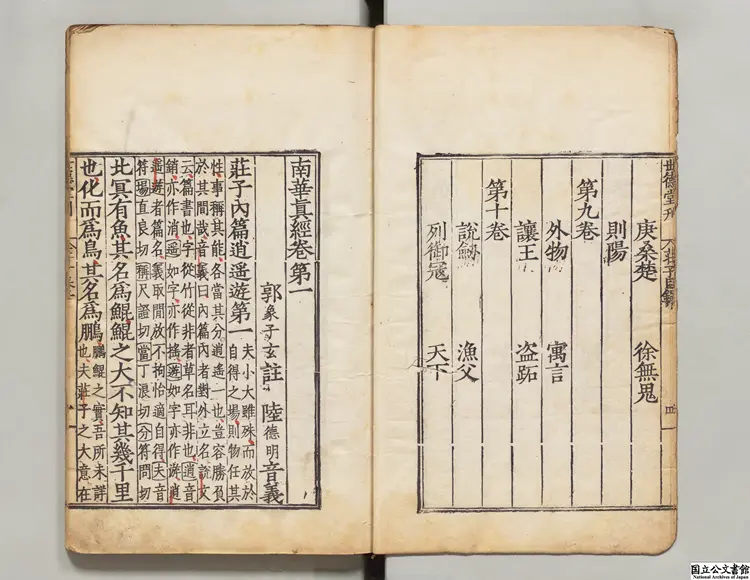 世德堂刊
莊子目錄
四
庚桑楚 徐無鬼
則陽
第九卷
外物 寓言
讓王 盗跖
第十卷
說劔 漁父
列御寇 天下
南華眞經卷第一
郭象子玄註 陸德明音義
莊子內篇逍遥遊第一
夫小大雖殊而放於
自得之場則物任其
性事稱其能各當其分逍遥一也豈容勝負
於其間哉音義曰內篇內者對外立名說文
云篇書也字從竹從非者草名耳非也逍音
銷亦作消遥如字亦作搖遊如字亦作游逍
遥遊者篇名義取閒放不拘怡適自得夫音
符場直良切稱尺證切當丁浪切分符問切
北冥有魚其名爲鯤鯤之大不知其幾千里
也化而爲鳥其名爲鵬
鵬鯤之實吾所未詳
也夫莊子之大意在
国立公文書館
National Archives of Japan